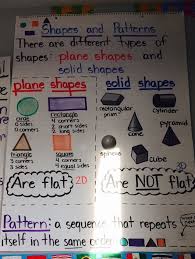 Shapes and Patterns
There are different types of
shapes: plane shapes and
solid shapes
plane shapes
solid shapes
circle
0 sides
0 corners
rectangle
4 corners
2 short sides
2 long sides
rectangular
prism
cylinder
cone
triangle
3 corners
3 sides
square
4 corners
4 equal sides
sphere
pyramid
cube
Are flat 2D
Are NOT flat
Pattern: a sequence that repeats
itself in the same order